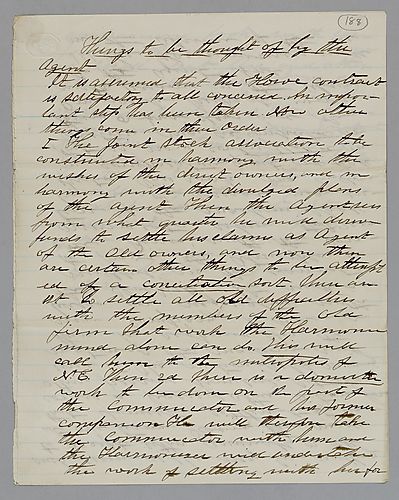 188
Things to be thought of by the
Agent
It is assumed that the Howe contract
is satisfactory to all concerned. An impor-
tant step has been taken. Now other
things come in their order
I The Joint Stock association to be
constructed in harmony with the
wishes of the direct owners, and in
harmony with the divulged plans
of the agent Then the Agent sees
from what quarter he will derive
funds to settle his claims as Agent
of the Old owners, and now there
are certain other things to be attempt
ed of a conciliation sort there are
1st to settle all old difficulties
with the members of the old
firm that work the Harmonia
mind alone can do. This will
call upon the the metropolis of
N.E. Then 2d There is a domestic
work to be done on the part of
the Communicator and his former
companion He will therefore take
the Communicator with him and
the Harmonia will undertake
the work of settling with her for